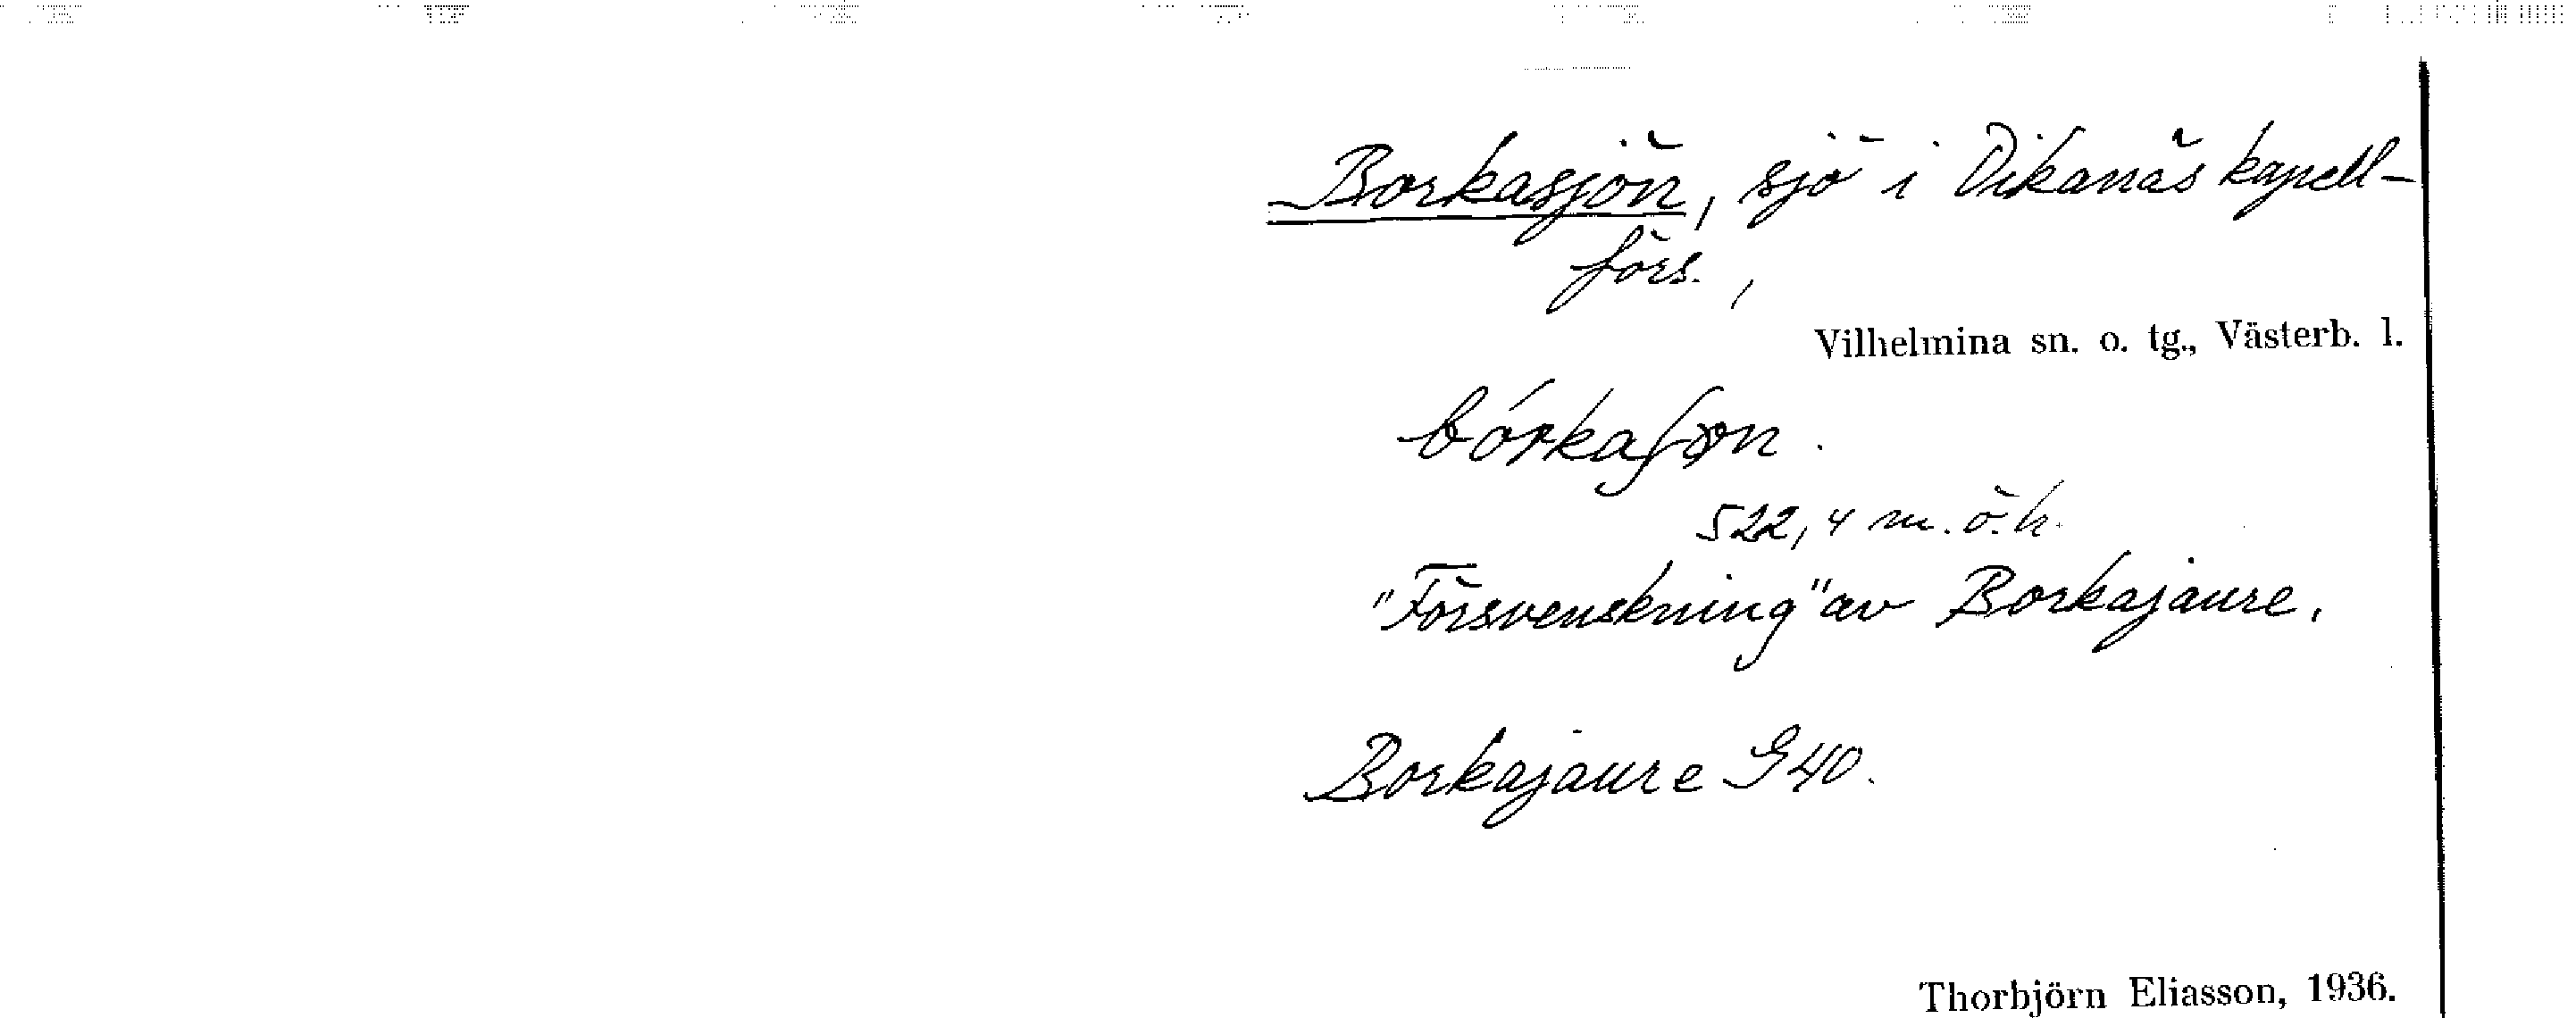 Borkasjön, sjö i Dikanäs kapell-
förs.,
Vilhelmina sn. o. tg., Västerb. l.
bórkaʃøn.
522,4 m.ö.h.
"Försvenskning" av Borkajaure.
Borkajaure G40.
Thorbjörn Eliasson, 1936.